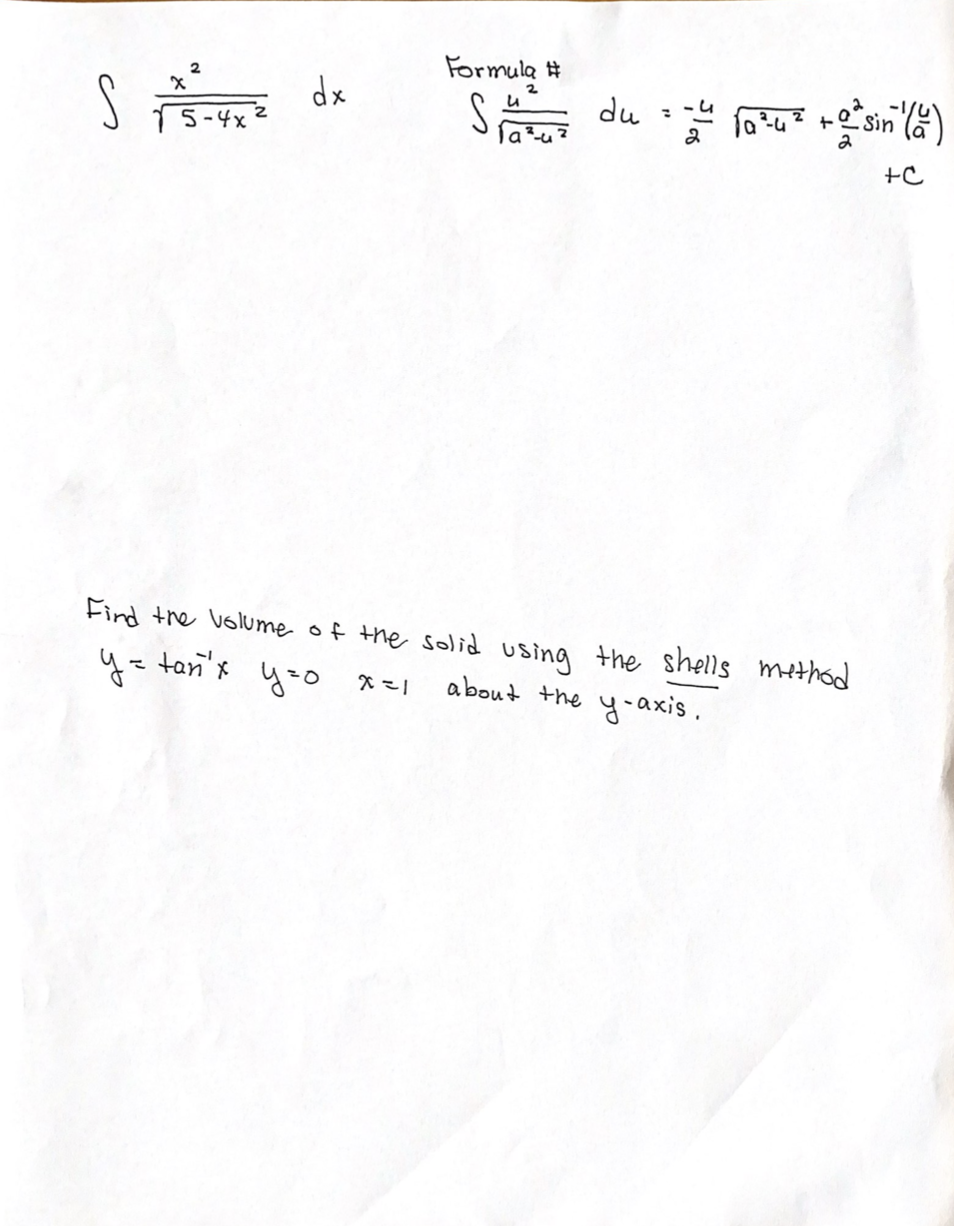 ∫ x² / √(5-4x²) dx
Formula #
∫ u² / √(a²-u²) du = -u/2 √(a²-u²) + a²/2 sin⁻¹(u/a)
+C
Find the volume of the solid using the shells method
y = tan⁻¹x y=0 x=1 about the y-axis.